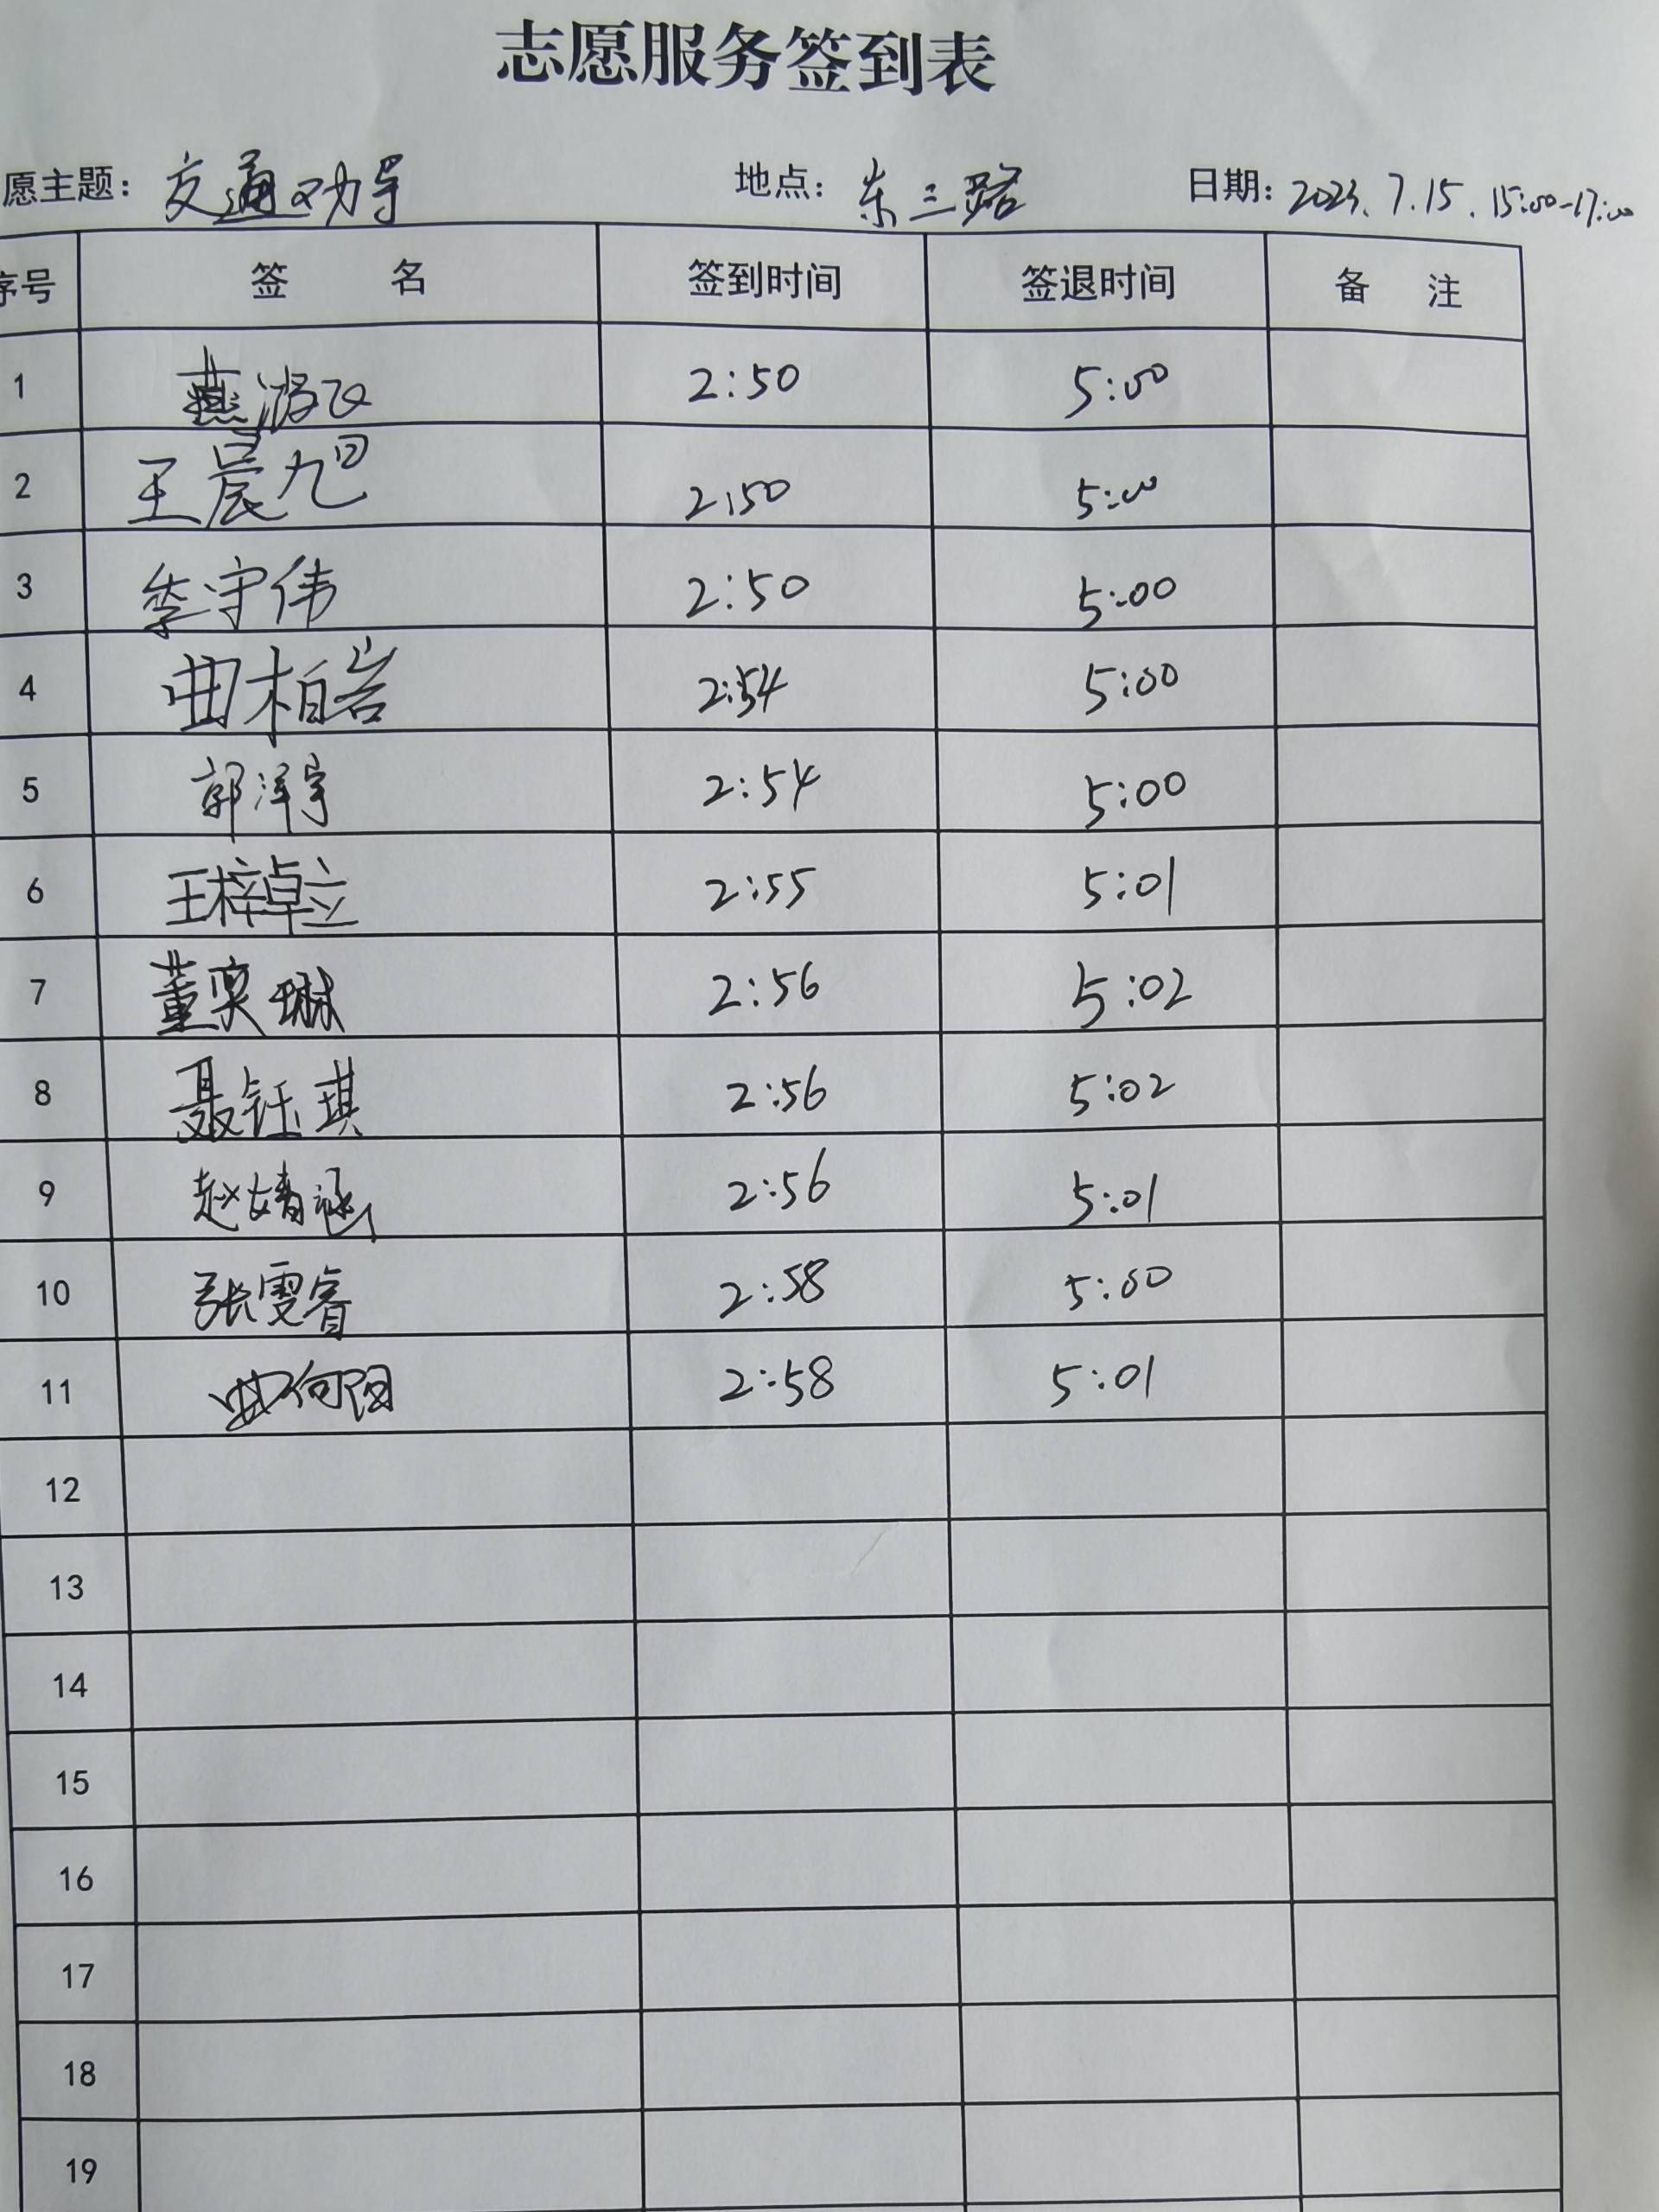 志愿服务签到表
愿主题：交通劝导 地点：东三路 日期：2023.7.15.15:00-17:00
序号 签 名 签到时间 签退时间 备 注
1 燕游飞 2:50 5:00
2 王晨旭 2:50 5:00
3 李守伟 2:50 5:00
4 曲柏岩 2:54 5:00
5 郭洋宇 2:54 5:00
6 王梓卓立 2:55 5:01
7 董奕琳 2:56 5:02
8 聂钰琪 2:56 5:02
9 赵婧涵 2:56 5:01
10 张雯睿 2:58 5:00
11 曲向阳 2:58 5:01
12
13
14
15
16
17
18
19